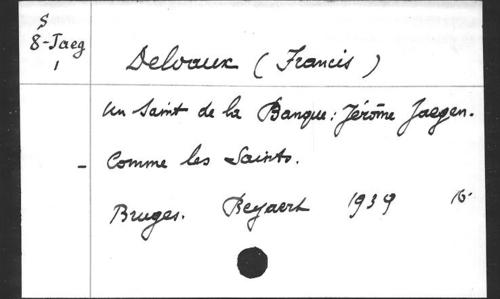 S
8-Jaeg
1
Delvaux (Francis)
Un Saint de la Banque: Jérôme Jaegen.
- Comme les Saints.
Bruges. Beyaert 1939